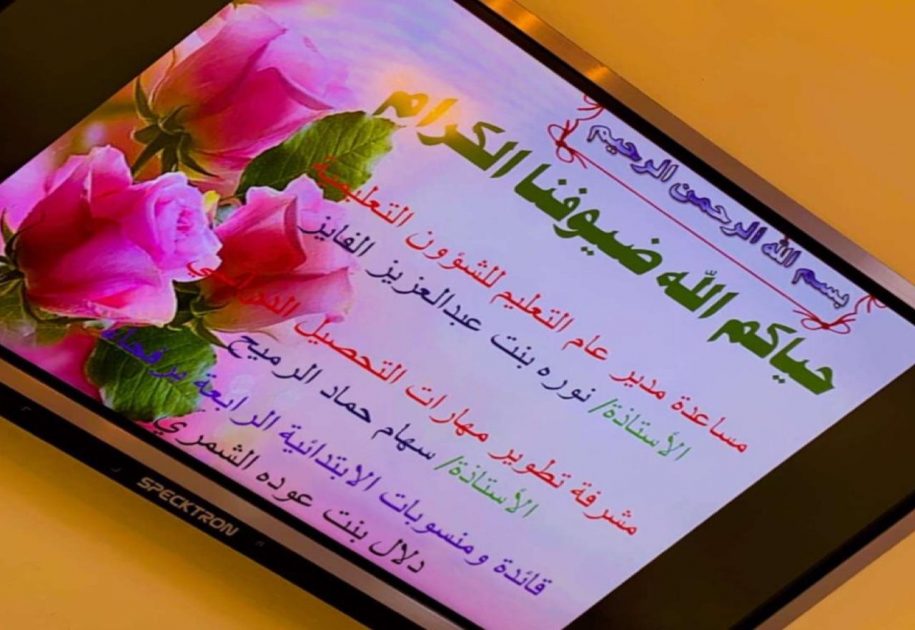 بسم الله الرحمن الرحيم
حياكم الله ضيوفنا الكرام
مساعدة مدير عام التعليم للشؤون التعليمية
الأستاذة/ نوره بنت عبدالعزيز الفايز
مشرفة تطوير مهارات التحصيل الدراسي
الأستاذة/ سهام حماد الرميح
قائدة ومنسوبات الابتدائية الرابعة برفحاء
دلال بنت عوده الشمري
SPECKTRON